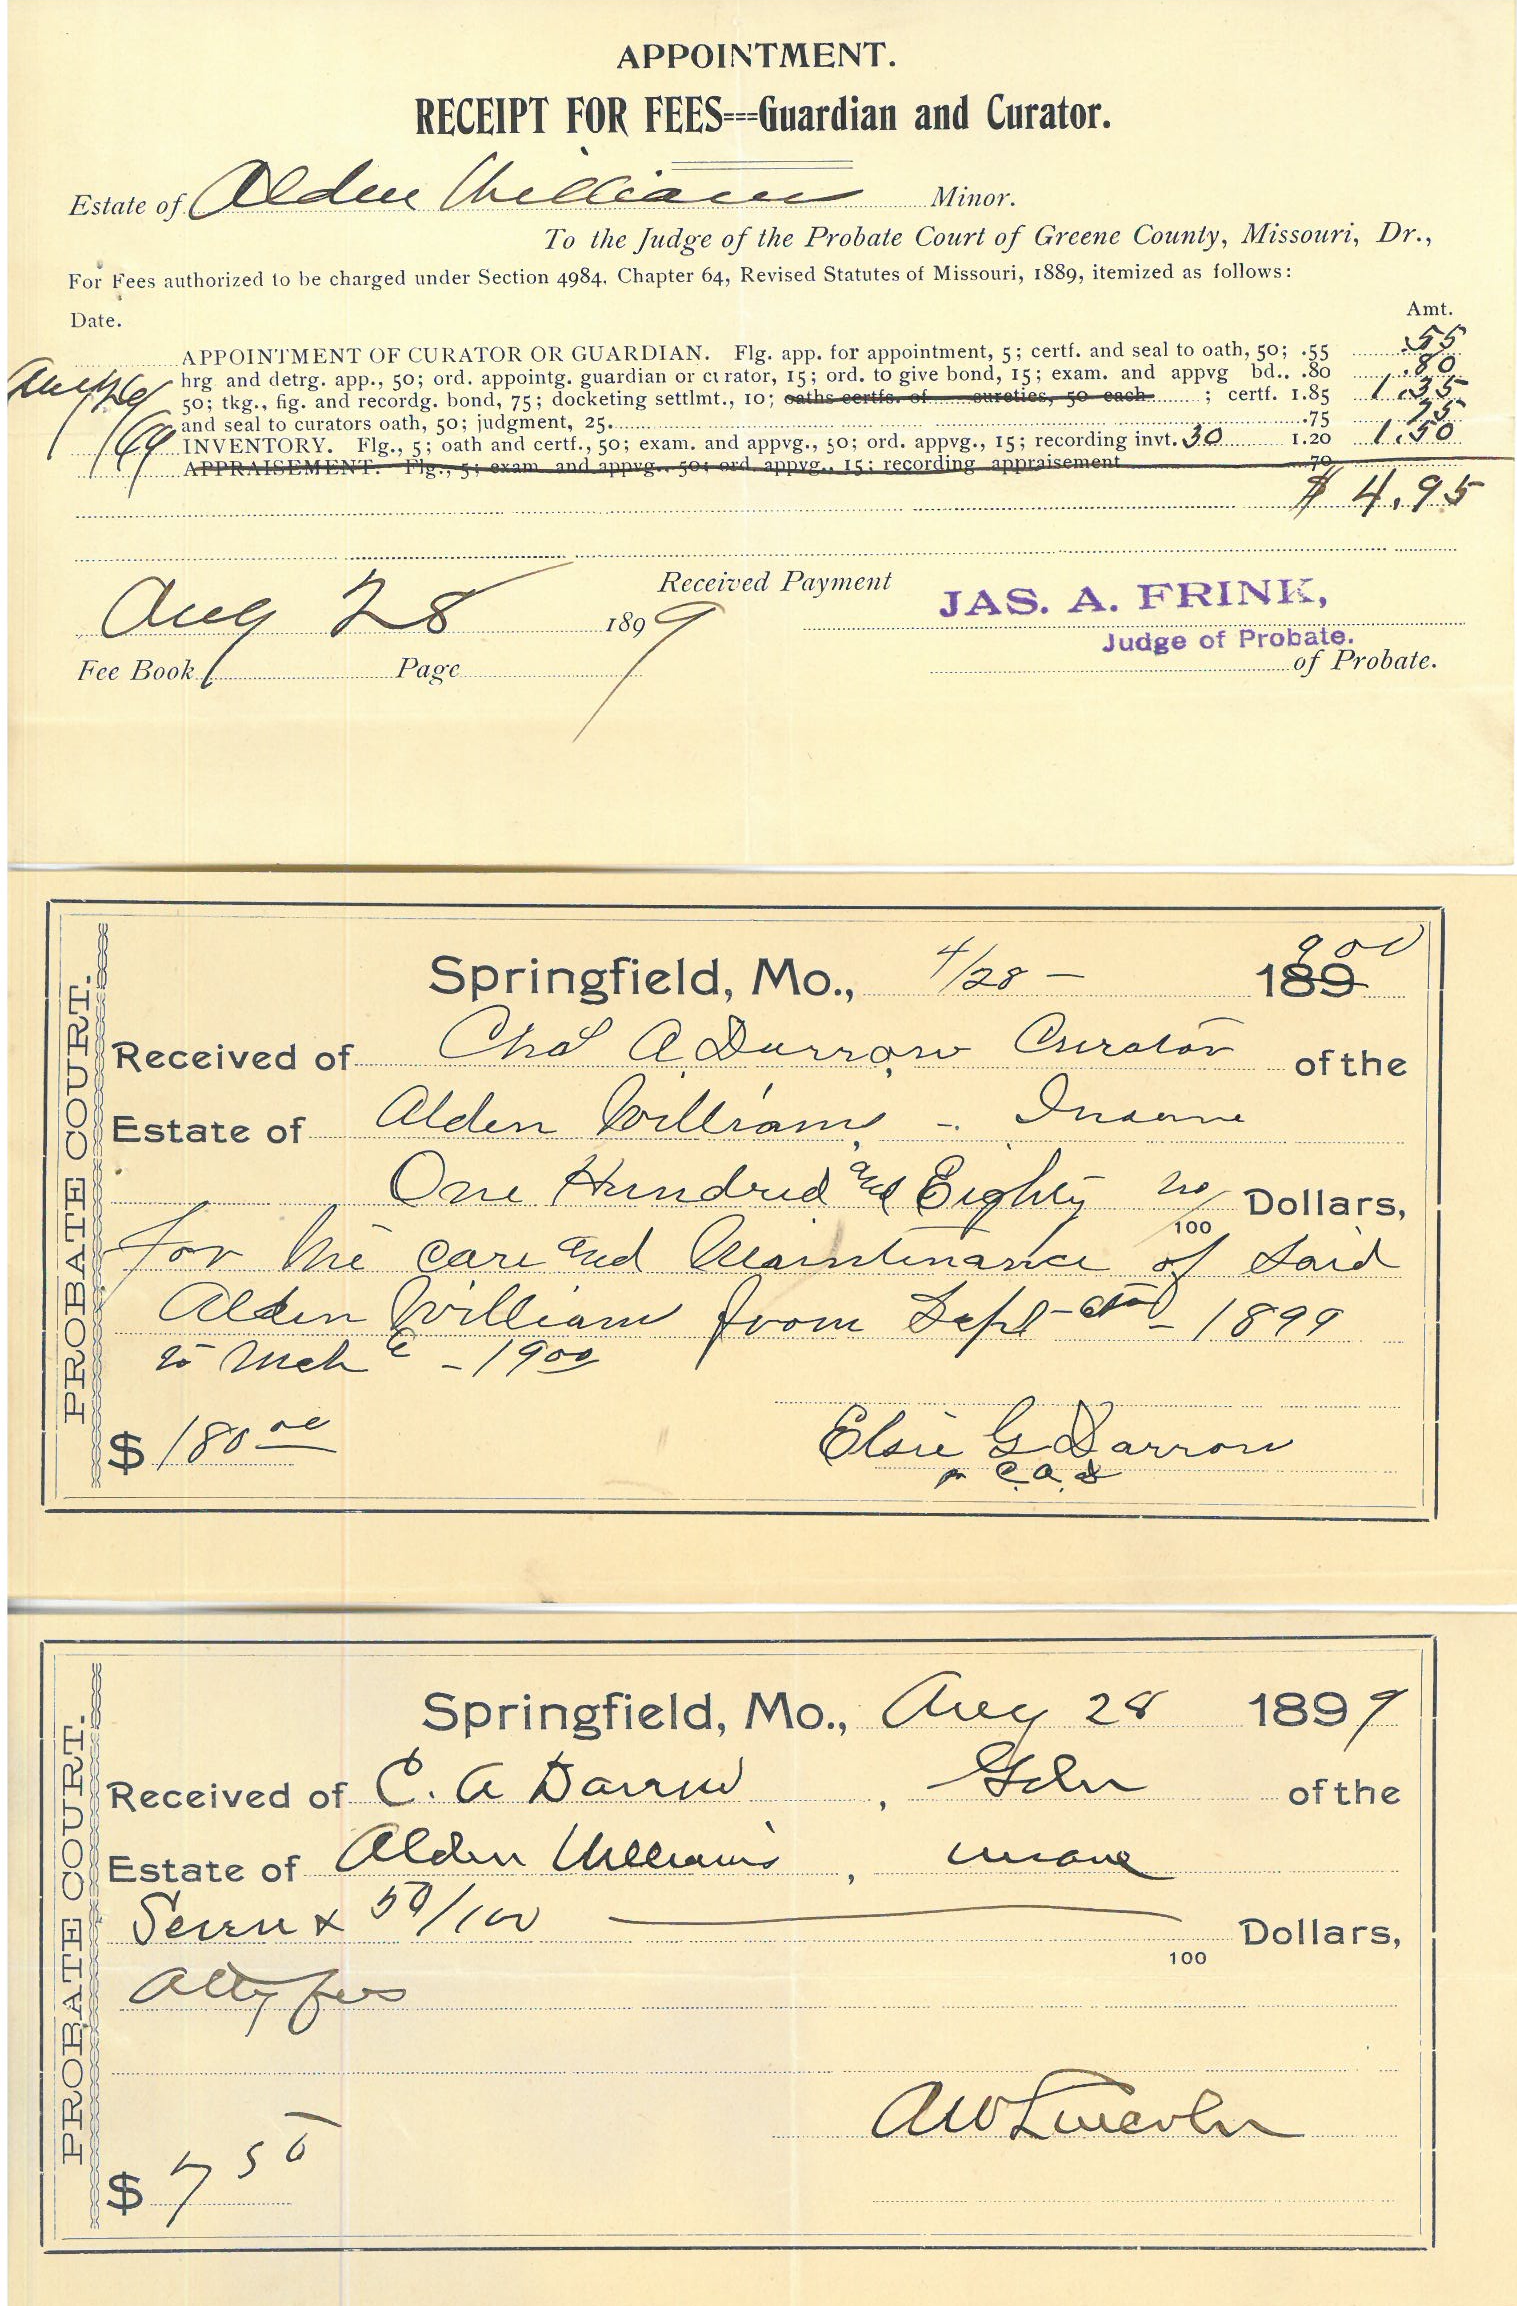 APPOINTMENT.
RECEIPT FOR FEES===Guardian and Curator.
Estate of Alden Williams Minor.
To the Judge of the Probate Court of Greene County, Missouri, Dr.,
For Fees authorized to be charged under Section 4984, Chapter 64, Revised Statutes of Missouri, 1889, itemized as follows:
Date. Amt.
APPOINTMENT OF CURATOR OR GUARDIAN. Flg. app. for appointment, 5; certf. and seal to oath, 50; .55 .55
hrg and detrg. app., 50; ord. appointg. guardian or curator, 15; ord. to give bond, 15; exam. and appvg bd.. .80 .80
50; tkg., fig. and recordg. bond, 75; docketing settlmt., 10; oaths certfs. of sureties, 50 each ; certf. 1.85 1.35
and seal to curators oath, 50; judgment, 25. .75 75
INVENTORY. Flg., 5; oath and certf., 50; exam. and appvg., 50; ord. appvg., 15; recording invt. 30 1.20 1.50
APPRAISEMENT. Flg., 5; exam. and appvg., 50; ord. appvg., 15; recording appraisement 70
$ 4.95
Received Payment
JAS. A. FRINK,
Aug 28 1899
Judge of Probate.
Fee Book Page of Probate.
PROBATE COURT.
Springfield, Mo., 4/28 - 189 900
Received of Chas A. Darrow Curator of the
Estate of Alden Williams, - Insane
One Hundred and Eighty no/100 Dollars,
for the care and Maintenance of Said
Alden William from Sept 1899
to Mch 6 - 1900
$ 180 00
Elsie G Darrow
C. A. D
PROBATE COURT.
Springfield, Mo., Aug 28 1899
Received of C. A Darrow, Gdn of the
Estate of Alden Williams, insane
Seven & 50/100 100 Dollars,
Atty fees
A W Lincoln
$ 7 50